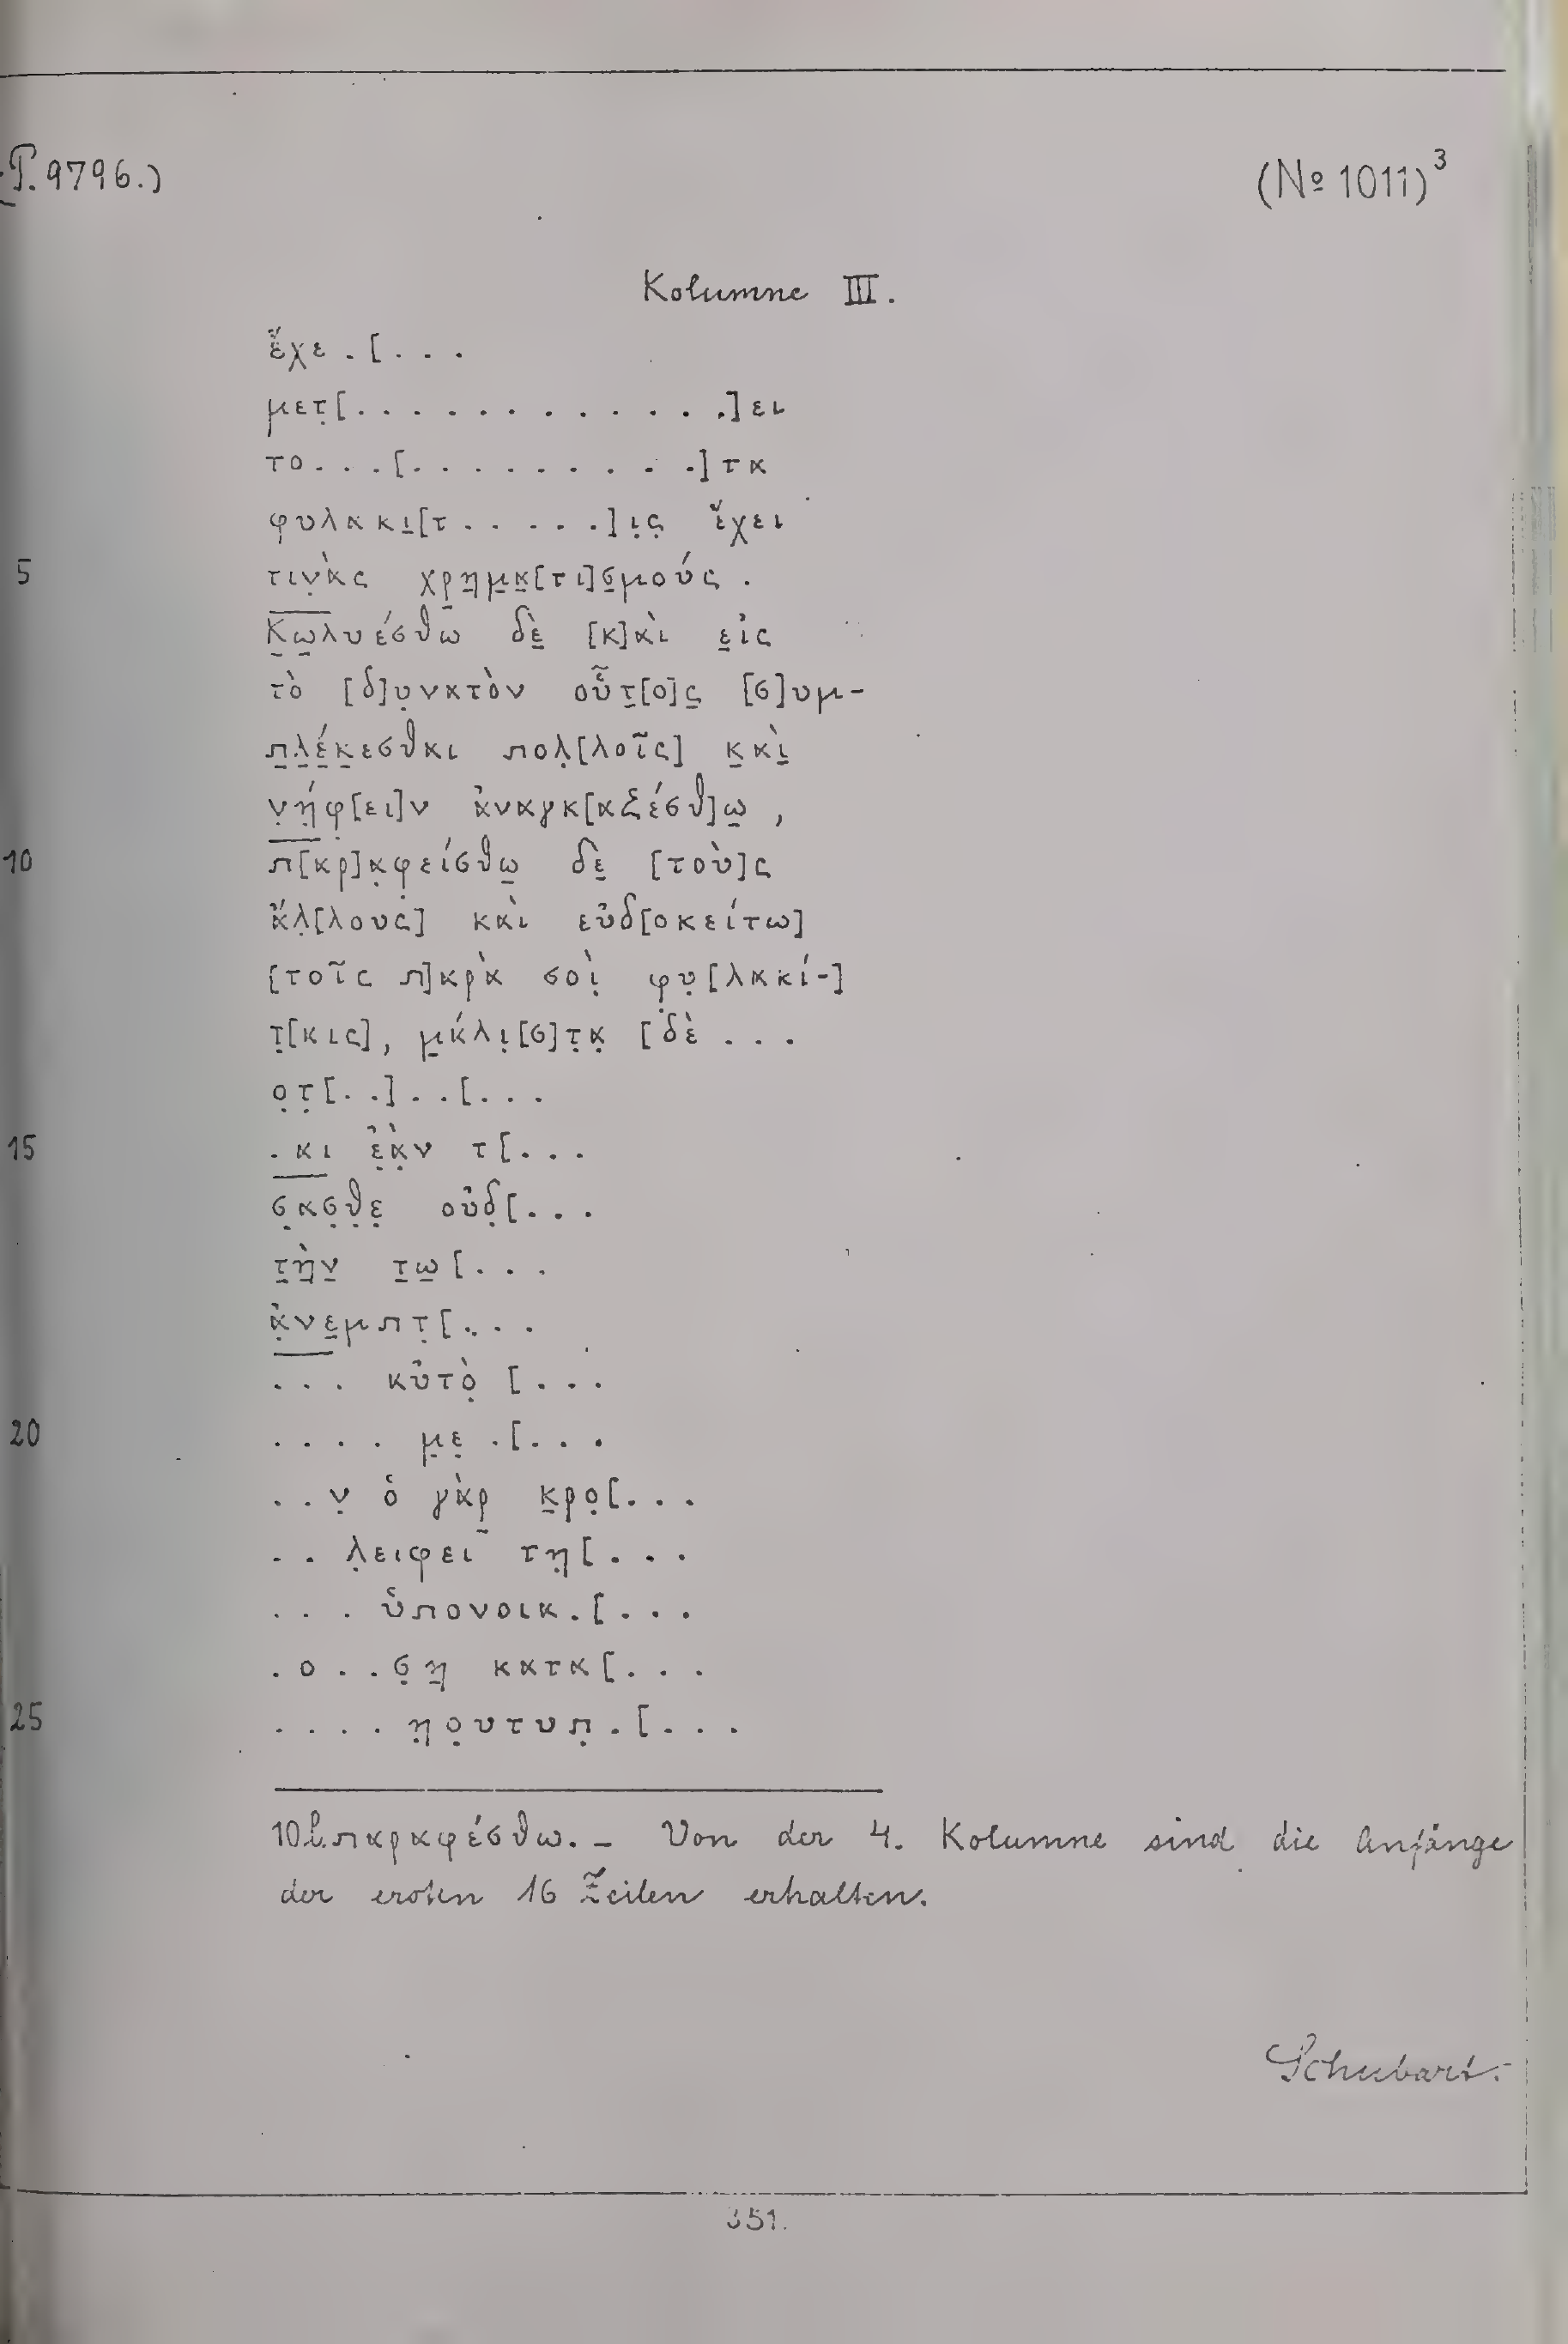 (P. 9796.)
(№ 1011)³
Kolumne III.
ἔχε . [ . . .
μετ̣[. . . . . . . . . . . . .]ει
το . . . [. . . . . . . . . .]τα
φυλακι̣[τ . . . . . .]ι̣ς̣ ἔχει
5 τιν̣ὰς χρ̣η̣μ̣α̣[τι]σ̣μούς .
Κ̣ω̣λυέσθω δὲ̣ [κ]αὶ ε̣ἰς
τὸ [δ]υ̣νατὸν οὗτ̣[ο]ς̣ [σ]υμ-
π̣λ̣έ̣κ̣εσθαι πολ̣[λοῖς] κ̣αὶ̣
ν̣ή̣φ[ει]ν ἀναγκ[αζέσθ]ω̣ ,
10 π[αρ]α̣φ̣είσθω̣ δὲ̣ [τοὺ]ς
ἄλ̣[λους] καὶ εὐδ[οκείτω]
[τοῖς π]αρὰ σοὶ̣ φ̣υ̣[λακί-]
τ̣[αις], μ̣άλι̣[σ]τ̣α̣ [δὲ . . .
ο̣τ̣[. .] . . [. . .
15 . αι ἐ̣ὰ̣ν τ[. . .
σ̣ασ̣θ̣ε̣ οὐδ̣[. . .
τ̣ὴ̣ν̣ τ̣ω̣[. . .
ἀ̣νε̣μπτ̣[. . .
. . . αὐτὸ̣ [. . .
20 . . . . μ̣ε̣ . [. . .
. . ν̣ ὁ γὰρ̣ κ̣ρο̣[. . .
. . λ̣ειφει τη̣[. . .
. . . ὑπονοια . [. . .
. ο . . σ̣η̣ κατα[. . .
25 . . . . η̣ο̣υτυπ̣ . [. . .
10 l. παραφέσθω. – Von der 4. Kolumne sind die Anfänge
der ersten 16 Zeilen erhalten.
Schubart.
351.